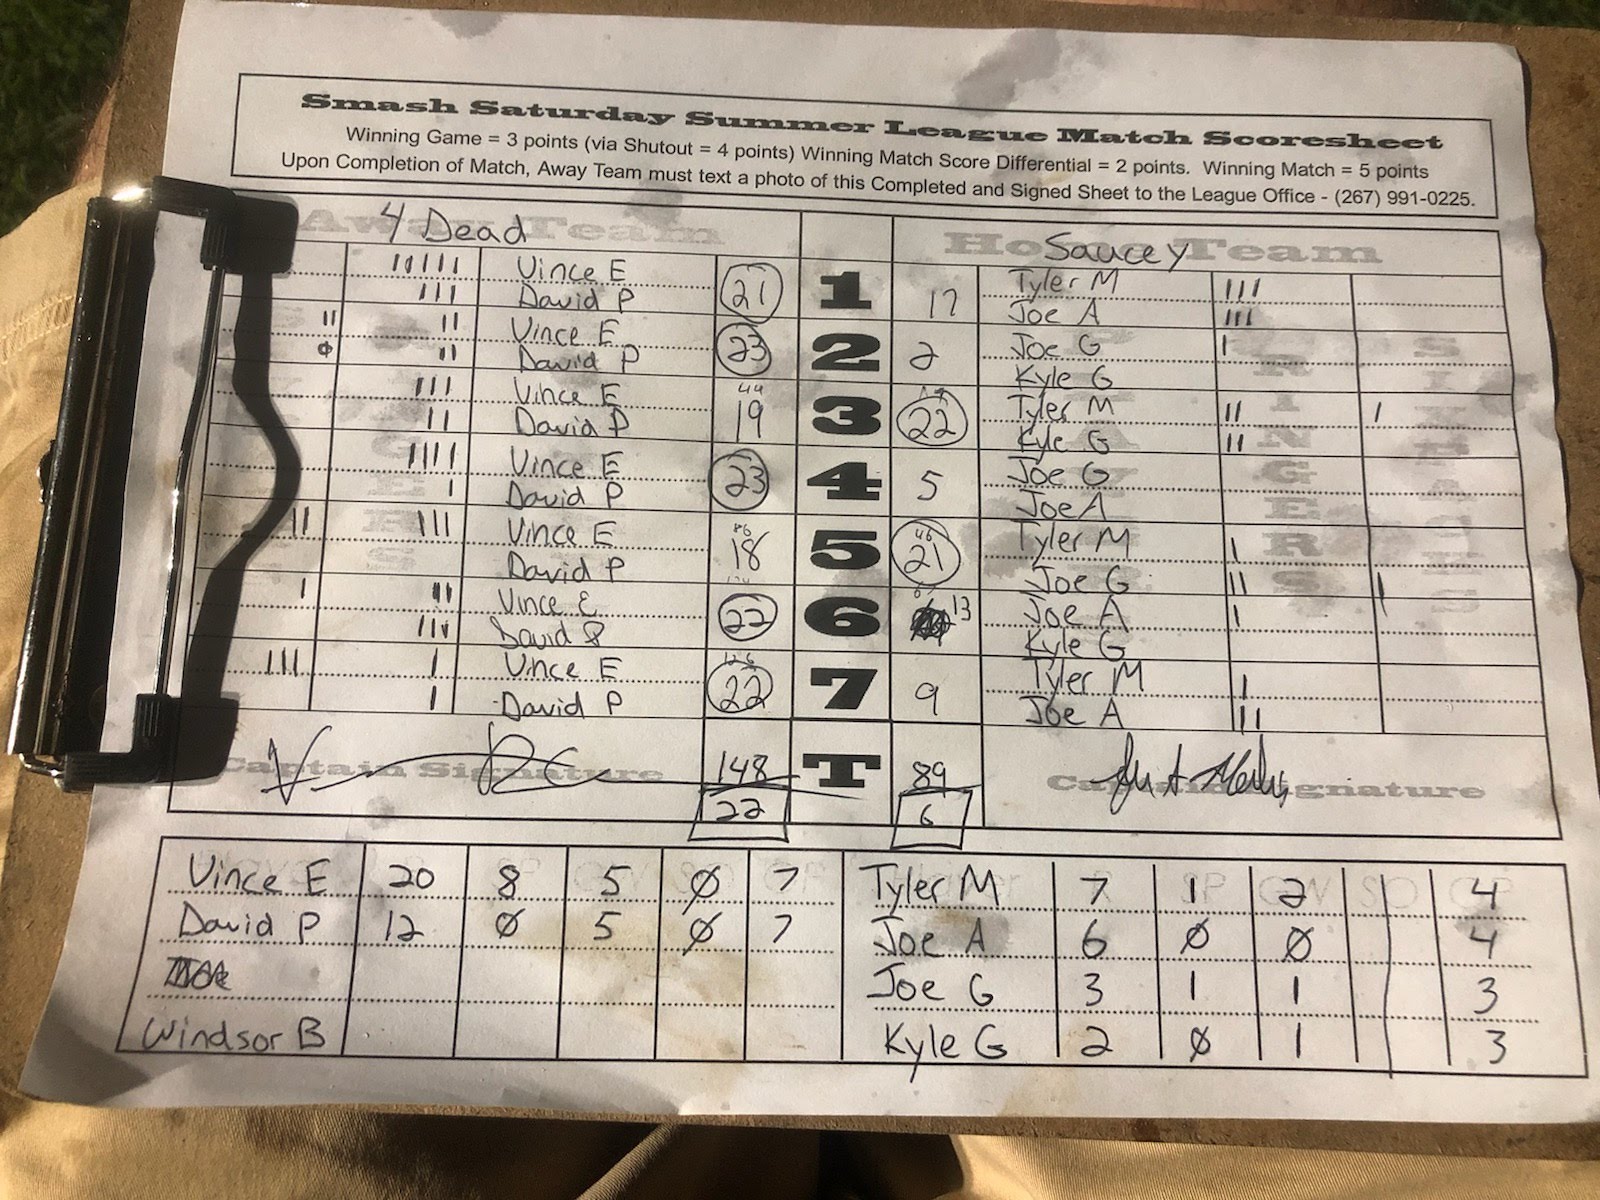 Smash Saturday Summer League Match Scoresheet
Winning Game = 3 points (via Shutout = 4 points) Winning Match Score Differential = 2 points. Winning Match = 5 points
Upon Completion of Match, Away Team must text a photo of this Completed and Signed Sheet to the League Office - (267) 991-0225.
Away Team Home Team
4 Dead Saucey
Vince E 21 1 17 Tyler M
David P Joe A
Vince E 23 2 2 Joe G
David P Kyle G
Vince E 19 3 22 Tyler M
David P Kyle G
Vince E 23 4 5 Joe G
David P Joe A
Vince E 18 5 21 Tyler M
David P Joe G
Vince E 22 6 13 Joe A
David P Kyle G
Vince E 22 7 9 Tyler M
David P Joe A
Captain Signature 148 T 89 Captain Signature
22 6
Vince E 20 8 5 Ø 7 Tyler M 7 1 2 4
David P 12 Ø 5 Ø 7 Joe A 6 Ø Ø 4
Joe G 3 1 1 3
Windsor B Kyle G 2 Ø 1 3